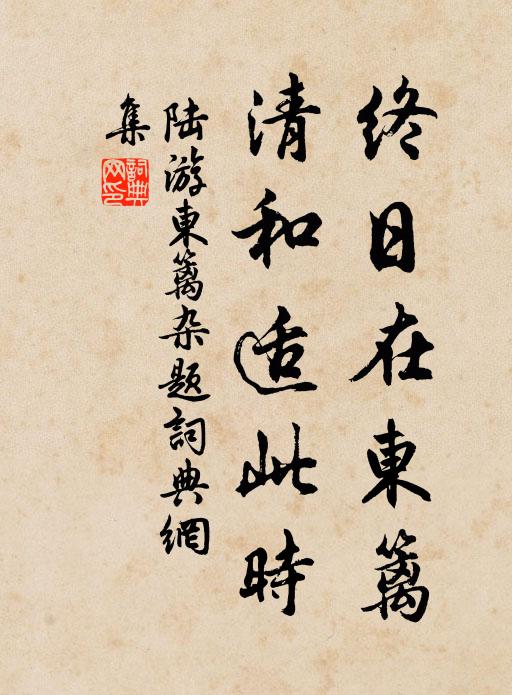 终日在東籬
清和适此時
陆游東籬杂题詞典網
集
詞典
网印